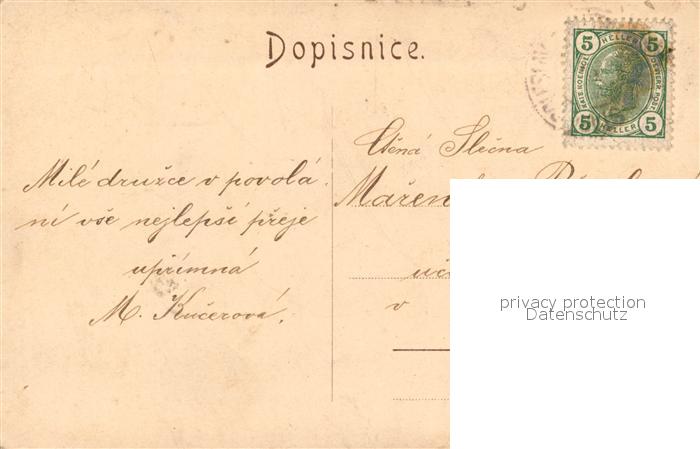 Dopisnice.
5 HELLER 5
5 HELLER 5
Ctěná Slečna
Milé družce v povolá-
ní vše nejlepší přeje
upřímná
M. Kučerová.
v
privacy protection
Datenschutz